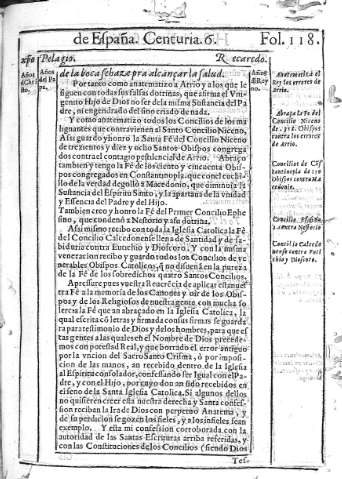 de España. Centuria. 6.
Fol. 118.
Pelagio.
Recaredo.
de la boca se haze pra alcançar la salud.
Por tanto como anatematizo a Arrio y a los que le
siguen con todas sus falsas dotrinas, que afirma el Vni-
genito Hijo de Dios no ser de la misma Sustancia del Pa
dre, ni engendrado del sino criado de nada.
Y como anatematizo todos los Concilios de los ma
lignantes que contravinieron al Santo Concilio Niceno.
Assi guardo y honro la Santa Fé del Concilio Niceno
de trezientos y diez y ocho Santos Obispos congrega
dos contra el contagio pestilencial de Arrio. Abraço
tambien y tengo la Fé de los ciento y cincuenta Obis-
pos congregados en Constantinopla, que con el cuchi-
llo de la verdad degolló a Macedonio, que diminuìa la
Sustancia del Espiritu Santo, y la apartaua de la vnidad
y Essencia del Padre y del Hijo.
Tambien creo y honro la Fé del Primer Concilio Ephe
sino, que condenó a Nestorio y a su dotrina.
Assi mismo recibo con toda la Iglesia Catolica la Fé
del Concilio Calcedonense llena de Santidad y de sa-
biduria contra Eutychio y Dioscoro. Y con la misma
veneracion recibo y guardo todos los Concilios de ve
nerables Obispos Catolicos, que no disuenã en la pureza
de la Fé de los sobredichos quatro Santos Concilios.
Apresurese pues vuestra Reuerẽcia de aplicar esta nuestra
Fé a la memoria de los Canones y oìr de los Obis-
pos y de los Religiosos de nuestra gente con mucha so
lercia la Fé que an abraçado en la Iglesia Catolica, la
qual escrita cõ letras y firmada con sus firmas se guarda
ra para testimonio de Dios y de los hombres, para que es
tas gentes a las quales en el Nombre de Dios precede-
mos con potestad Real, y que borrado el error antiguo
por la vncion del Sacro Santo Crisma, ò por imposi-
cion de las manos, an recebido dentro de la Iglesia
al Espiritu consolador, confessando ser Igual con el Pa-
dre, y con el Hijo, por cuyo don an sido recebidos en
el seno de la Santa Iglesia Catolica. Si algunos dellos
no quisieren creer esta nuestra derecha y Santa confes-
sion reciban la Ira de Dios con perpetuo Anatema, y
de su perdicion se gozen los fieles, y a los infieles sean
exemplo. Y esta mi confession corroborada con la
autoridad de las Santas Escrituras arriba referidas, y
con las Constituciones de los Concilios (siendo Dios
Tes-
Anatematiza el
Rey los errores de
Arrio.
Abraça la Fé del
Concilio Niceno
de. 318. Obispos
contra los errores
de Arrio.
Concilio de Cõs
tantinopla de 150
Obispos contra Ma
cedonio.
Concilio Efesino
contra Nestorio
Concilio Calcedo
nense contra Euti
chio y Dioscoro.